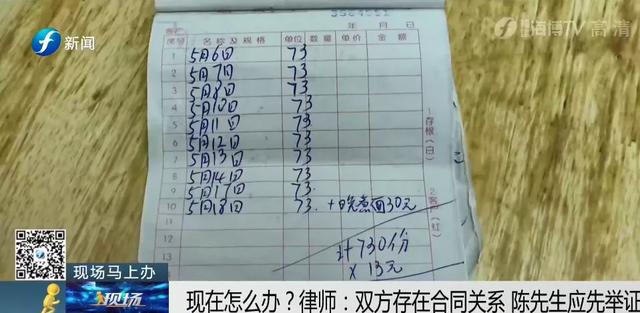 新闻
海博TV高清
3984551
年 月 日
序号 名称及规格 单位 数量 单价 金额
1 5月6日 73
2 5月7日 73
3 5月8日 73
4 5月10日 73
5 5月11日 73
6 5月12日 73
7 5月13日 73
8 5月14日 73
9 5月17日 73.
10 5月18日 73. +晚煮面30元
11
12 计730份
13 ×13元
1存根(白)
2客户(红)
现场马上办
现场
现在怎么办?律师:双方存在合同关系 陈先生应先举证